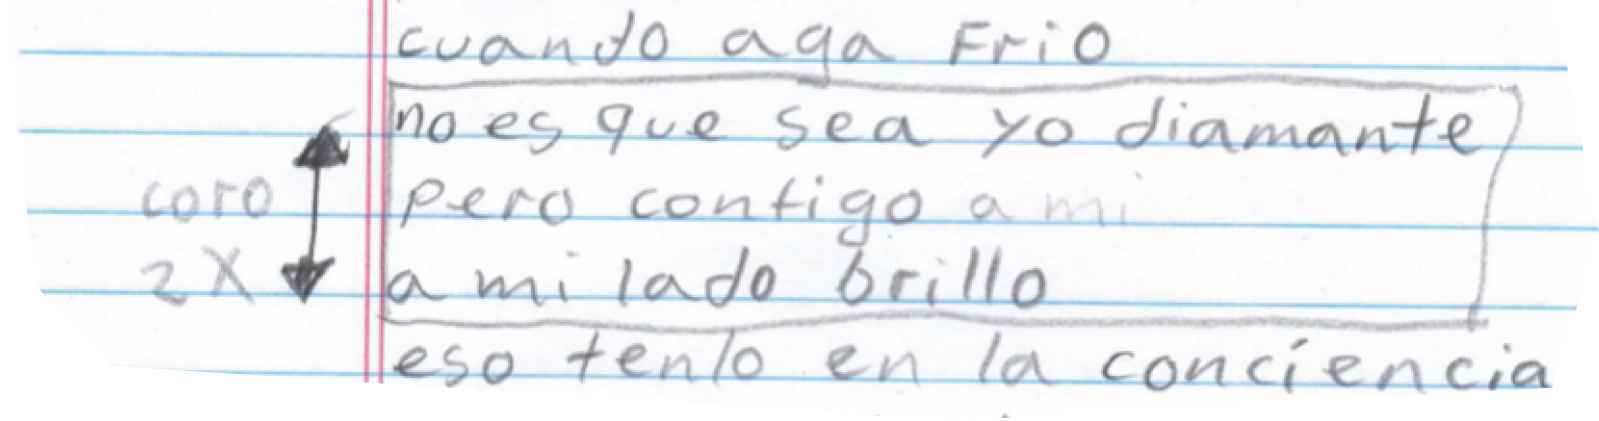 cuando aga Frio
no es que sea yo diamante
coro
pero contigo a mi
2X
a mi lado brillo
eso tenlo en la conciencia